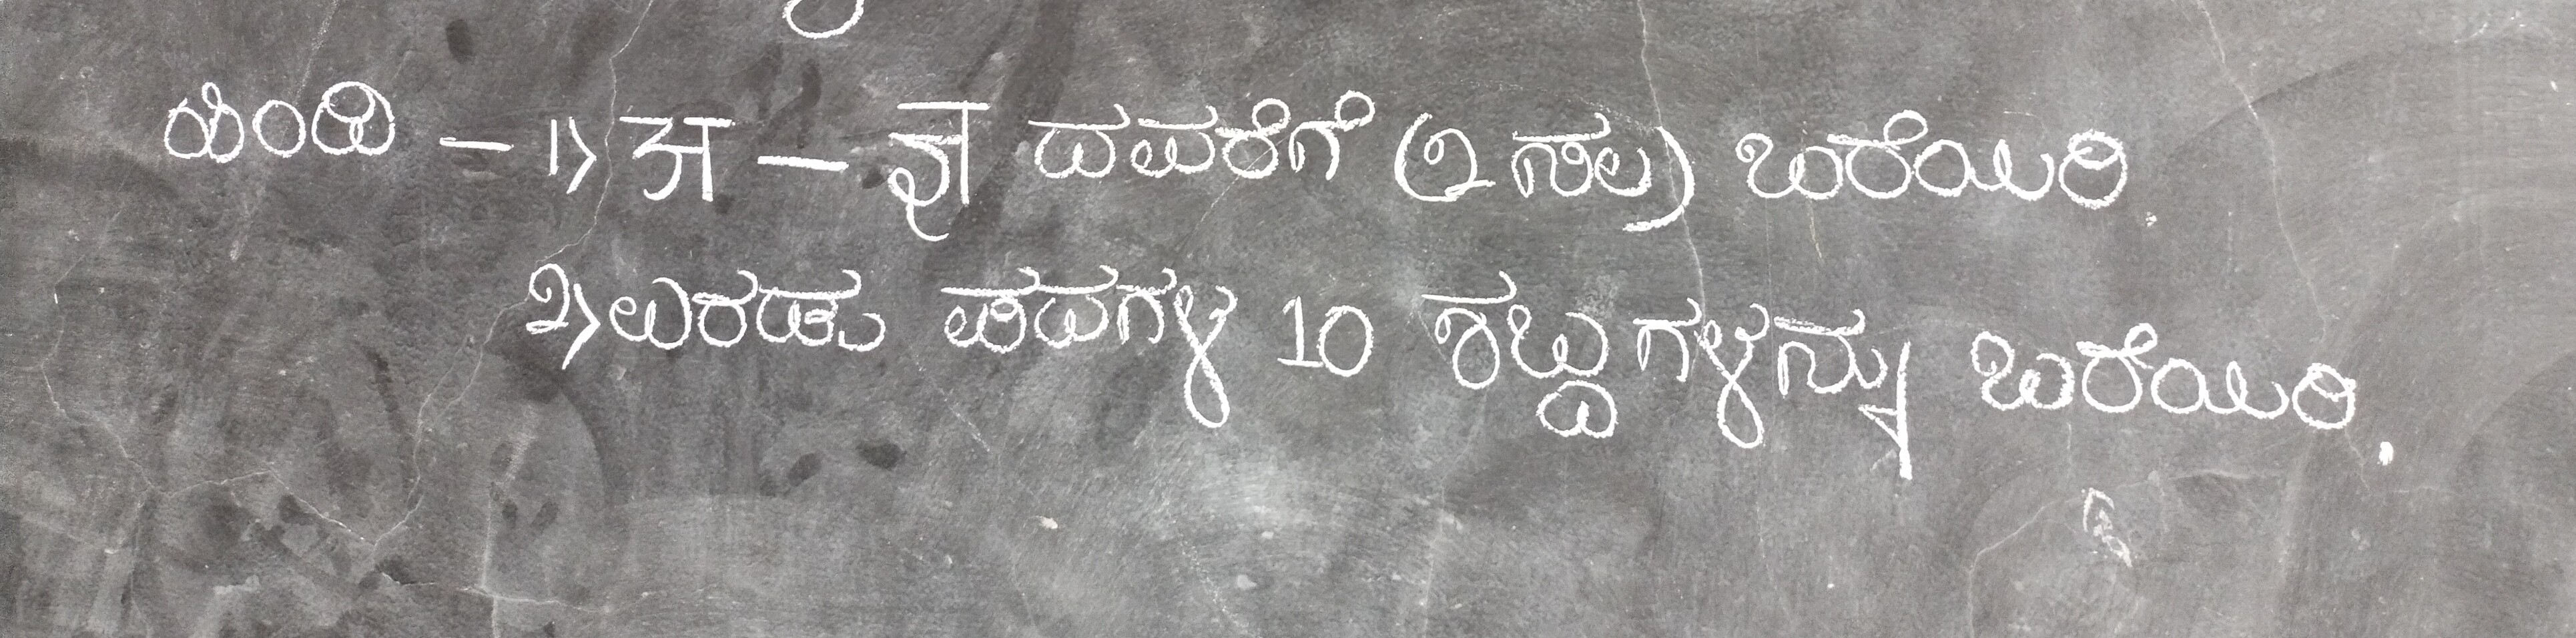 ಹಿಂದಿ - 1) अ - ज्ञ ದವರೆಗೆ (೨ ಸಲ) ಬರೆಯಿರಿ.
2) ಎರಡು ಪದಗಳ 10 ಶಬ್ದಗಳನ್ನು ಬರೆಯಿರಿ.